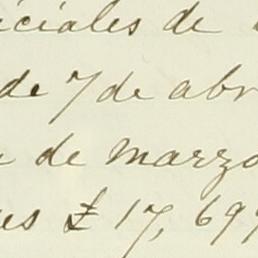 iciales de
de 7 de abr
de marzo
es £ 17,69